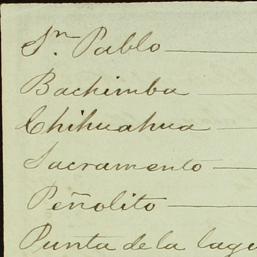 Sn. Pablo
Bachimba
Chihuahua
Sacramento
Peñolito
Punta de la lagu